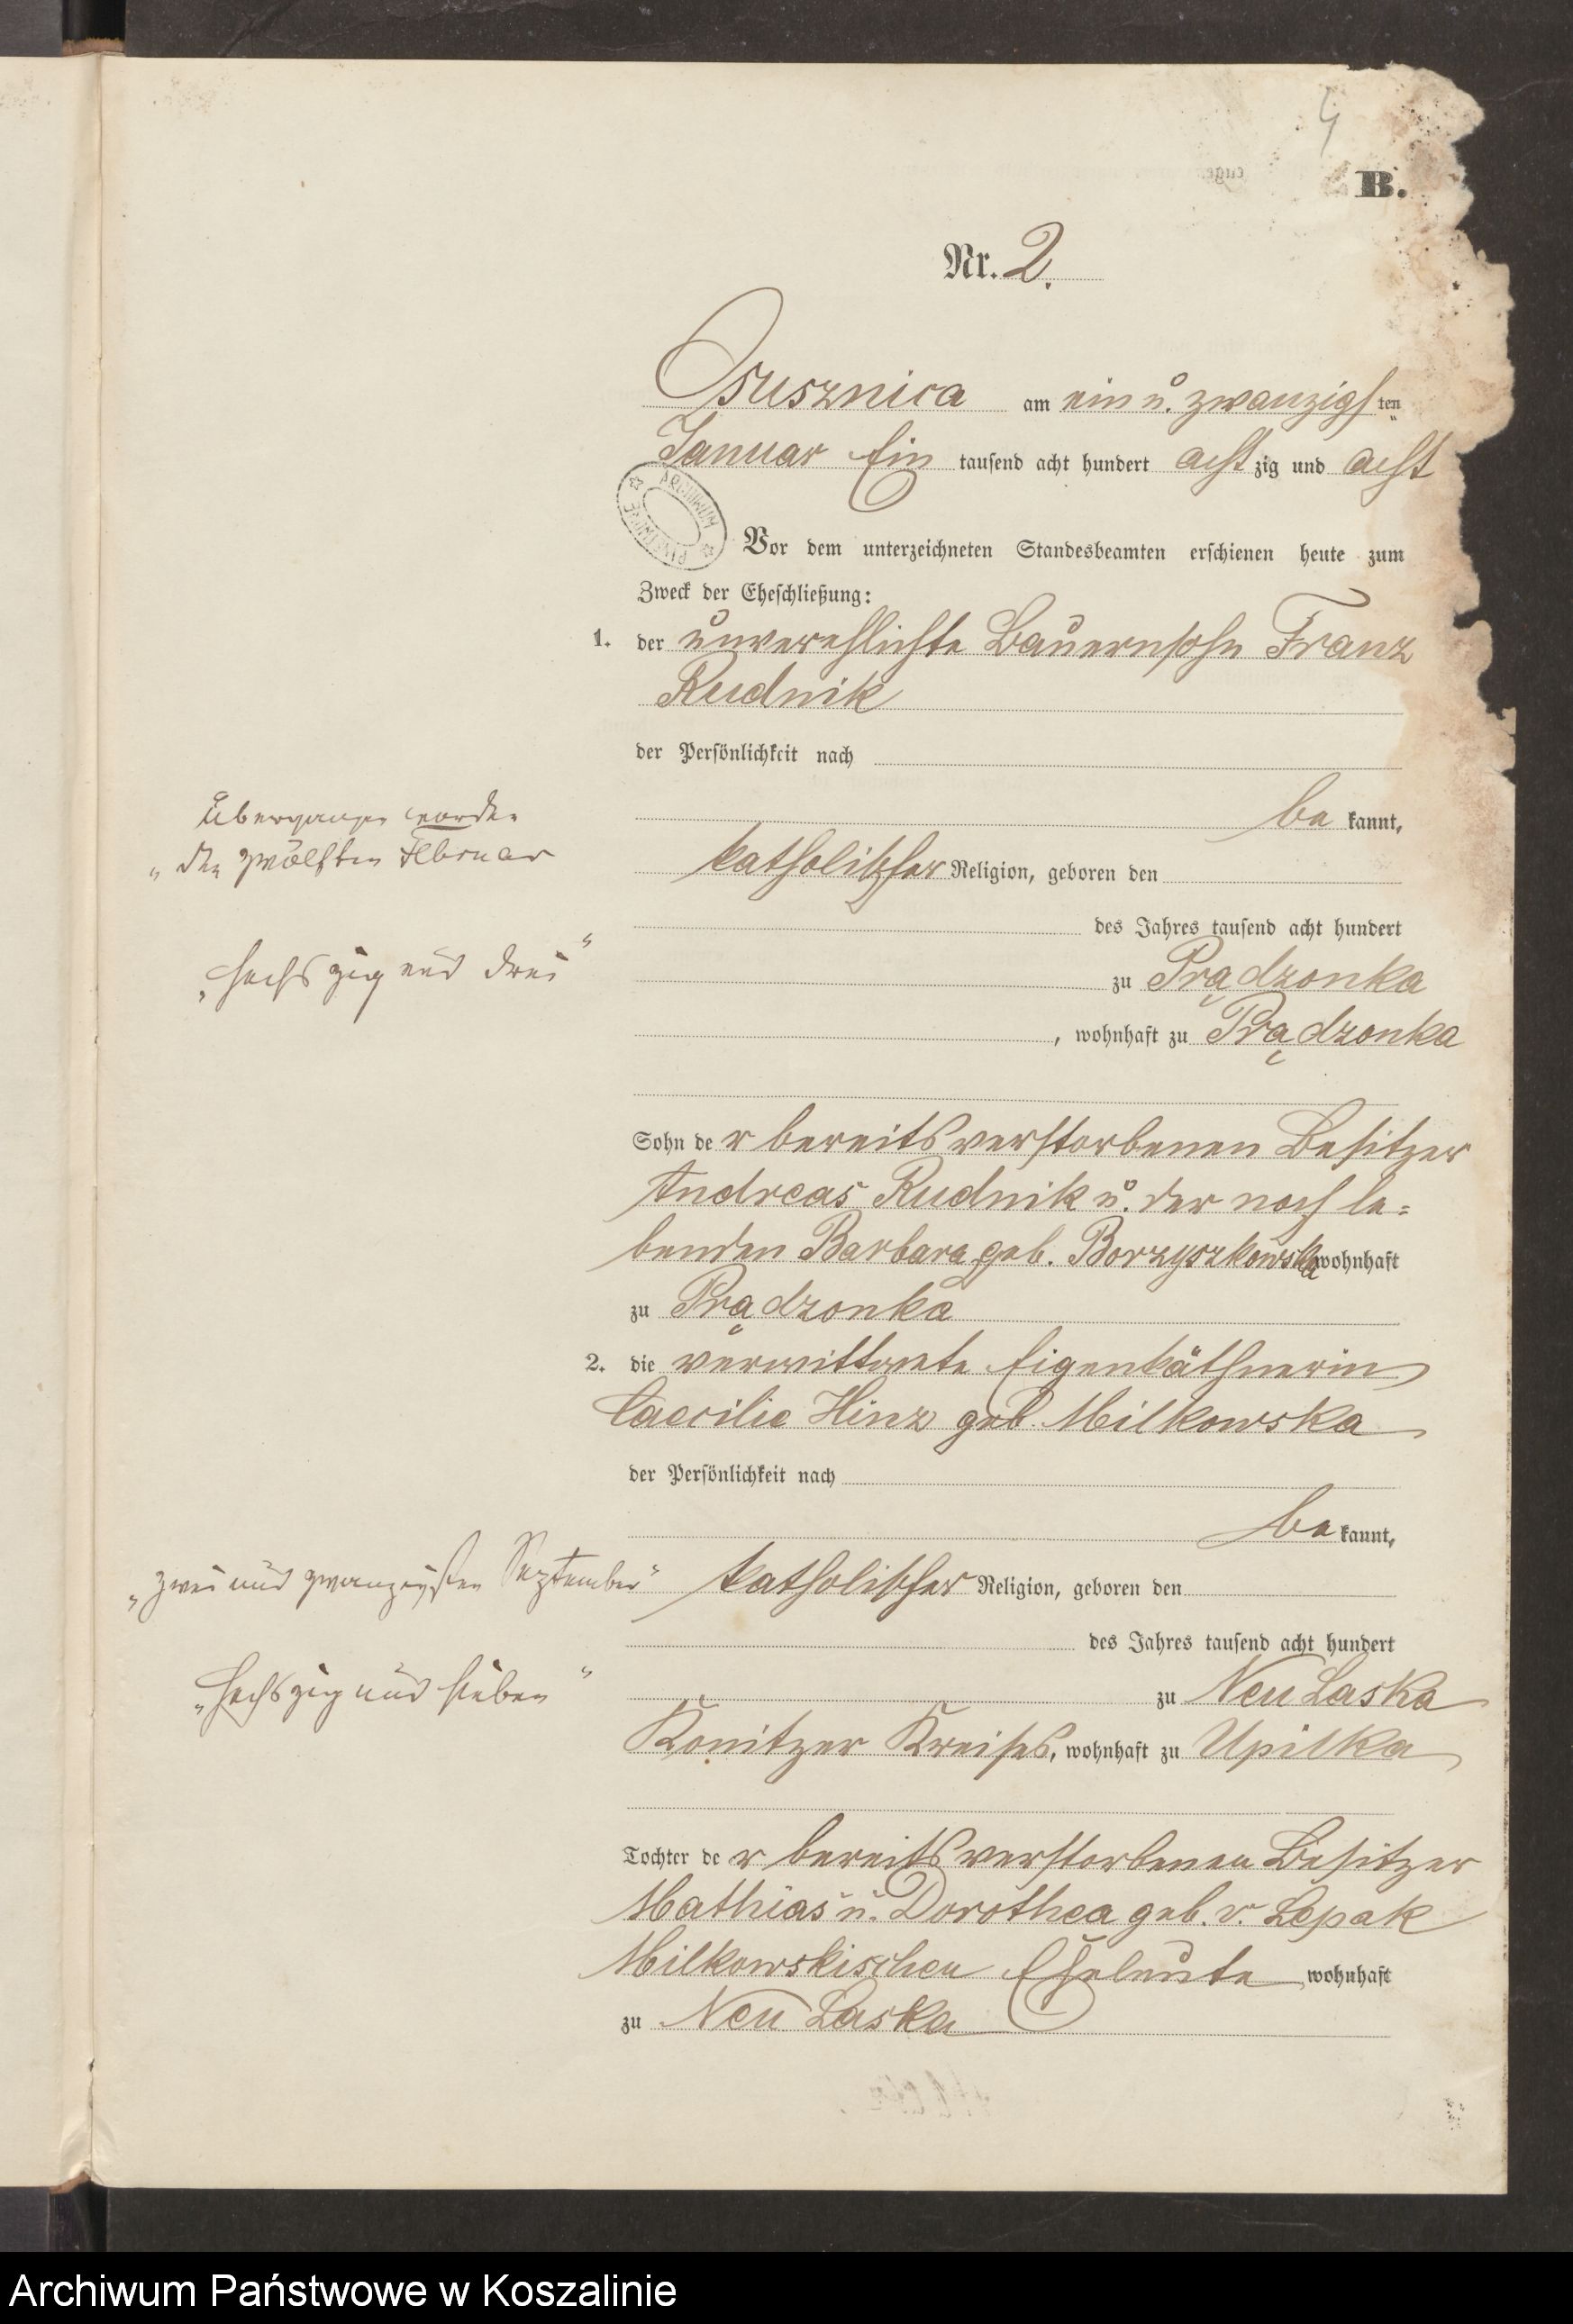 4
B.
Nr. 2.
Osusznica am ein u. zwanzigsten
Januar Ein tausend acht hundert achtzig und acht
ARCHIWUM
Vor dem unterzeichneten Standesbeamten erschienen heute zum
Zweck der Eheschließung:
1. der unverehlichte Bauernsohn Franz
Rudnik
der Persönlichkeit nach
bekannt,
Übergangen worden
„den zwölften Februar
katholischer Religion, geboren den
des Jahres tausend acht hundert
„sechszig und drei“
zu Prądzonka
, wohnhaft zu Prądzonka
Sohn der bereits verstorbenen Besitzer
Andreas Rudnik u. der noch le=
benden Barbara geb. Borzyszkowska wohnhaft
zu Prądzonka
2. die verwittwete Eigenkäthnerin
Caecilie Hinz geb. Milkowska
der Persönlichkeit nach
bekannt,
„zwei und zwanzigsten September“
katholischer Religion, geboren den
des Jahres tausend acht hundert
„sechszig und sieben“
zu Neu Laska
Konitzer Kreises, wohnhaft zu Upilka
Tochter der bereits verstorbenen Besitzer
Mathias u. Dorothea geb. v. Lepak
Milkowskischen Eheleute wohnhaft
zu Neu Laska
Archiwum Państwowe w Koszalinie